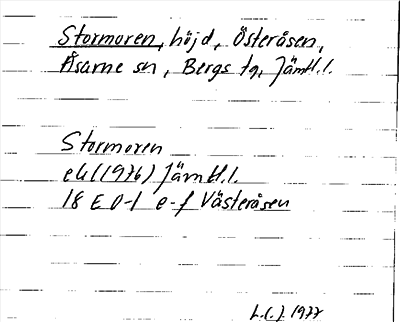 Stormoren, höjd, Österåsen,
Åsarne sn, Bergs tg, Jämtl.l.
Stormoren
ek (1976) Jämtl.l.
18 E 0-1 e-f Västeråsen
1977